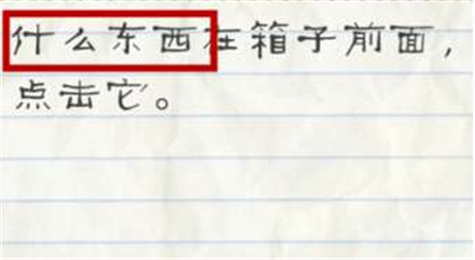 什么东西在箱子前面，
点击它。